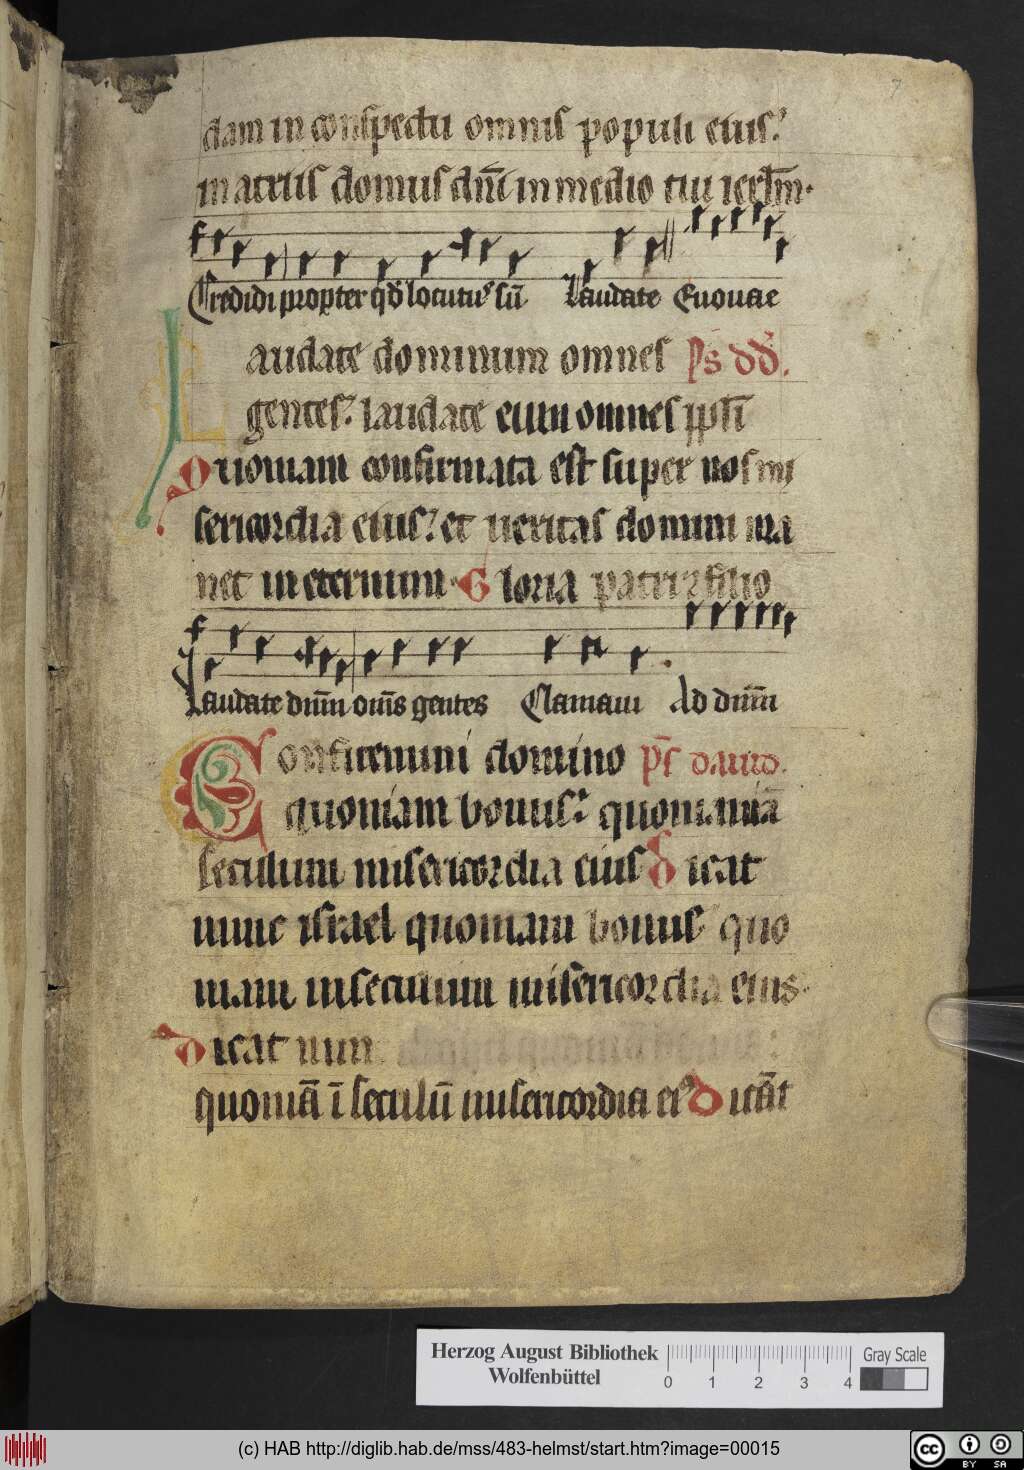 7
dam in conspectu omnis populi eius.
in atriis domus dnī in medio tui ierlm̄.
Credidi propter qd̄ locutus sū Laudate Euouae
Laudate dominum omnes Ps dd̄.
gentes. laudate eum omnes ppl̄i
Quoniam confirmata est super nos mi
sericordia eius. et ueritas domini ma
net in eternum. Gloria patri ⁊ filio
Laudate dnm̄ om̄s gentes Clamaui Ad dnm̄
Confitemini domino ps̄ dauid.
quoniam bonus. quoniam in
seculum misericordia eius Dicat
nunc israel quoniam bonus quo
niam in seculum misericordia eius.
Dicat nun
quoniā ī seculū misericordia ei9 Dicāt
Herzog August Bibliothek
Wolfenbüttel
0 1 2 3 4
Gray Scale
(c) HAB http://diglib.hab.de/mss/483-helmst/start.htm?image=00015
cc BY SA